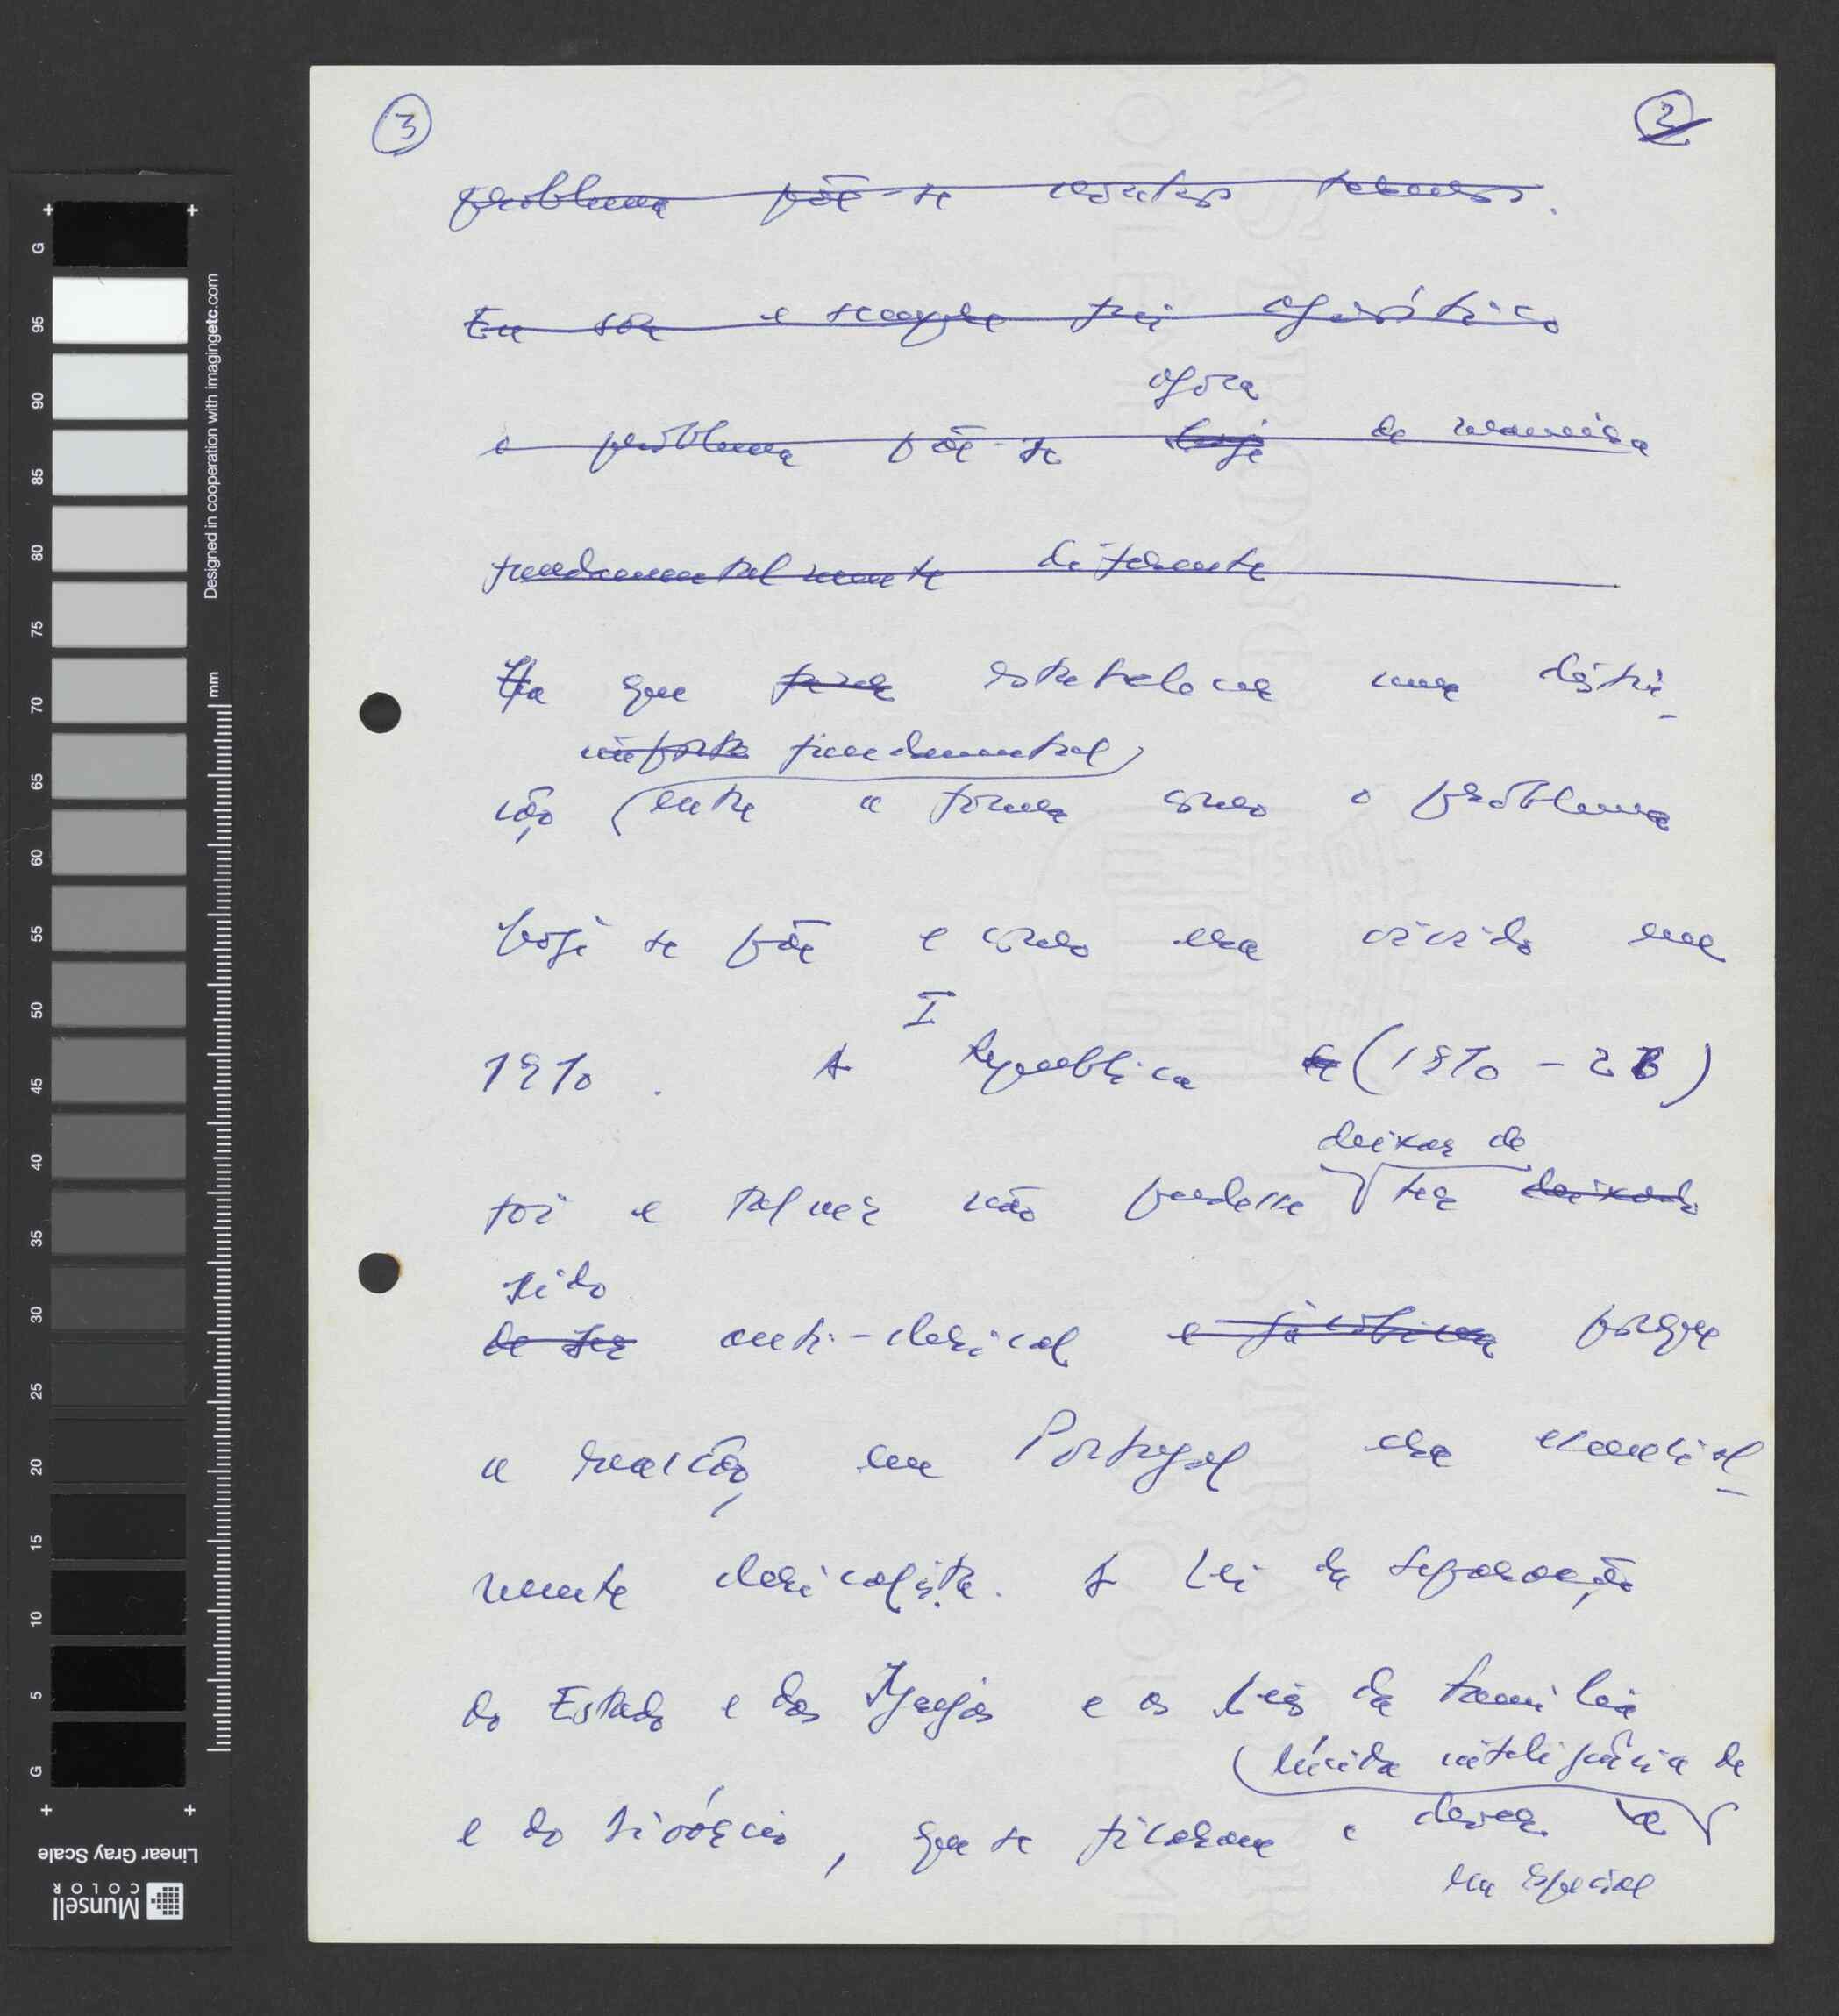 3
2
problema põe-se nestes termos.
Eu sou e sempre fui agnóstico
agora
o problema põe-se hoje de maneira
fundamentalmente diferente
Há que fazer estabelecer uma distin-
importante fundamental
ção entre a forma como o problema
hoje se põe e como era vivido em
1910. A I República (1910-26)
deixar de
foi e talvez não pudesse ter deixado
sido
de ser anti-clerical e jacobina porque
a reacção, em Portugal era
mente clericalista. A Lei da Separação
do Estado e das Igrejas e as Leis da Família
lúcida inteligência de
e do Divórcio, que se ficaram a dever a
em especial
Designed in cooperation with imagingetc.com
mm
G
95
90
85
80
75
70
65
60
55
50
45
40
35
30
25
20
15
10
5
G
Linear Gray Scale
Munsell
COLOR